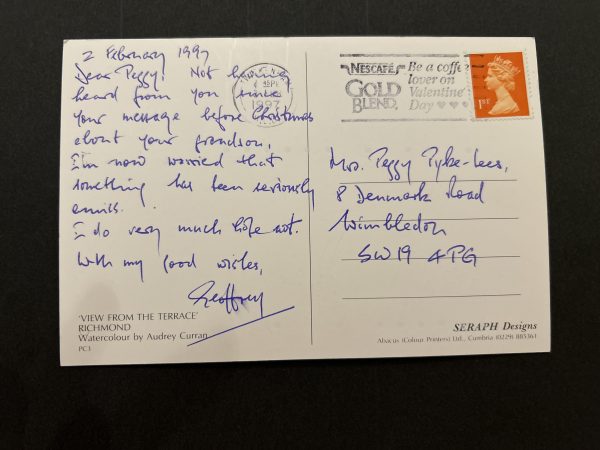 2 February 1997
Dear Peggy, Not having
heard from you since
your message before Christmas
about your grandson,
I'm now worried that
something has been seriously
amiss.
I do very much hope not.
With my good wishes,
Geoffrey
'VIEW FROM THE TERRACE'
RICHMOND
Watercolour by Audrey Curran
PC3
1997
NESCAFÉ
GOLD
BLEND,
Be a coffee
lover on
Valentine
Day
1ST
Mrs. Peggy Pyke-Lees,
8 Denmark Road
Wimbledon
SW19 4PG
SERAPH Designs
Abacus (Colour Printers) Ltd., Cumbria (0229) 885361